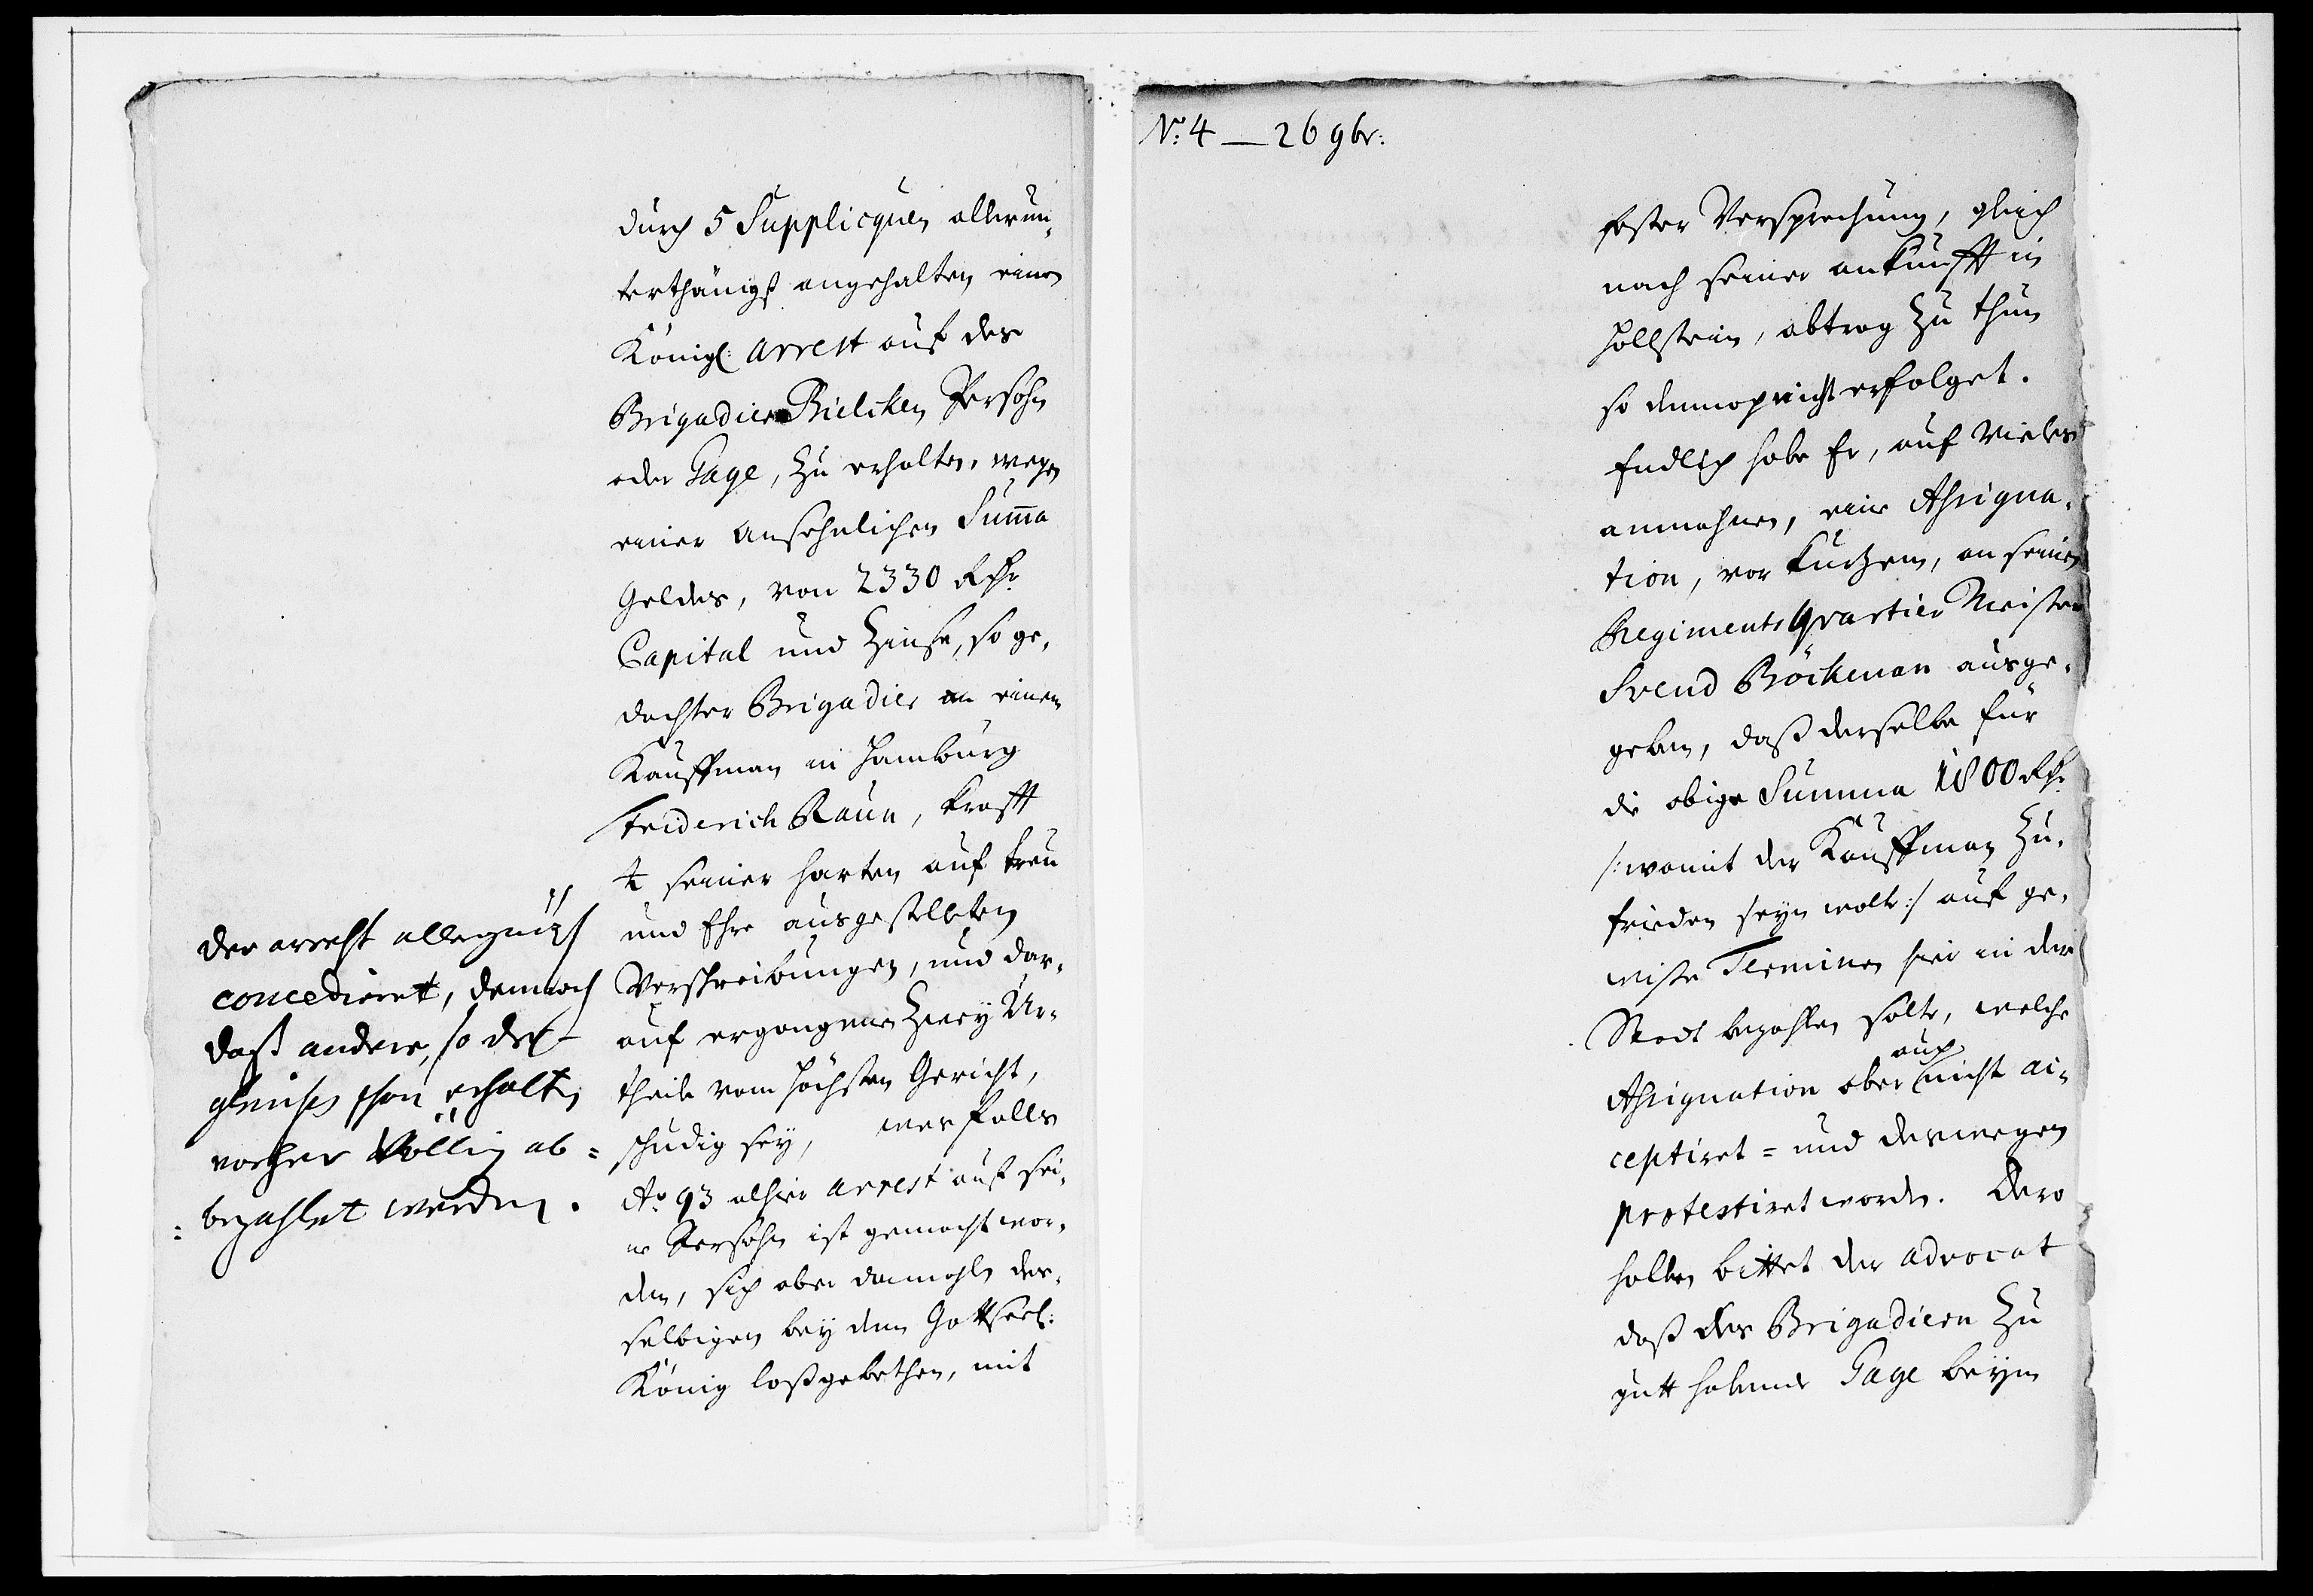 durch 5 Supplicquen allerun¬
terthänigst angehalten einen
Königl: Arrest auf des
Brigadier Bielcken Persohn
oder Gage, zu erhalten, wegen
einer ansehnlichen Suma
Geldes, von 2330 Rthr
Capital und Zinse, so ge¬
dachter Brigadier an einen
Kauffman in Hamburg
Friderich Baun, krafft
4 seiner harten auf treu
und Ehre ausgestelleten
Verschreibungen, und dar¬
auf ergangene Zwey Ur¬
theile vom Höchsten Gericht,
schudig sey, wesfalls
Ao 93 alhier Arrest auf sei¬
ne Persohn ist gemacht wor¬
den, sich aber damahls der¬
selbigen bey dem Gottseel:
König loßgebethen, mit
der arrest allergnädigst
concedieret, dennoch
daß andere, so des¬
gleichen schon erhalten
vorher völlig ab=
=bezahlet werden.
No: 4 — 26 9br:
fester Versprechung, gleich
nach seiner ankunfft in
Hollstein, abtrag zu thun
so dennoch nicht erfolget.
Endlich habe Er, auf vieles
anmahnen, eine Assigna¬
tion, vor kurtzem, an seinen
Regiments Qvartier Meister
Svend Böckman ausge¬
geben, daß derselbe für
die obige Summa 1800 Rthr
/: womit der Kauffman zu¬
frieden seyn wolte :/ auf ge¬
wisse Terminen hier in der
Stadt bezahlen solte, welche
auch
Assignation aber nicht ac¬
ceptiret = und deswegen
protestiret worden. Dero
halben bittet der Advocat
daß des Brigadiern zu
gutt habende Gage beym